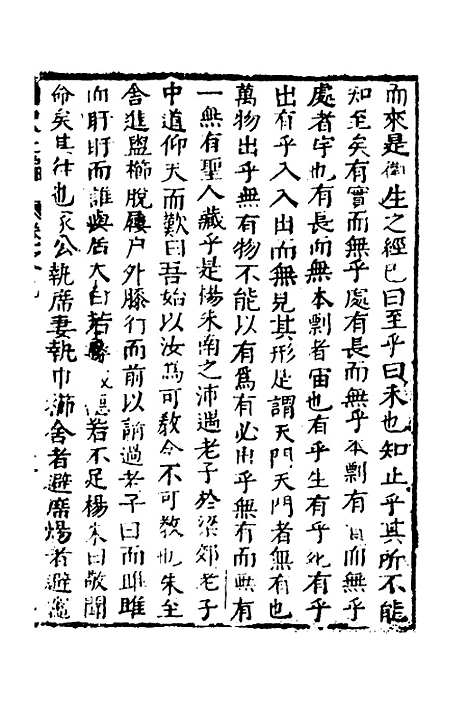 而來是衛生之經已曰至乎曰未也知止乎其所不能
知至矣有實而無乎處有長而無乎本剽有實而無乎
處者宇也有長而無本剽者宙也有乎生有乎死有乎
出有乎入入出而無見其形是謂天門天門者無有也
萬物出乎無有物不能以有爲有必出乎無有而無有
一無有聖人藏乎是楊朱南之沛遇老子於梁郊老子
中道仰天而歎曰吾始以汝爲可教今不可教也朱至
舍進盥櫛脫屨戶外膝行而前以請過老子曰而睢睢
而盱盱而誰與居大白若辱 德若不足楊朱曰敬聞
命矣其往也家公執席妻執巾櫛舍者避席煬者避竈